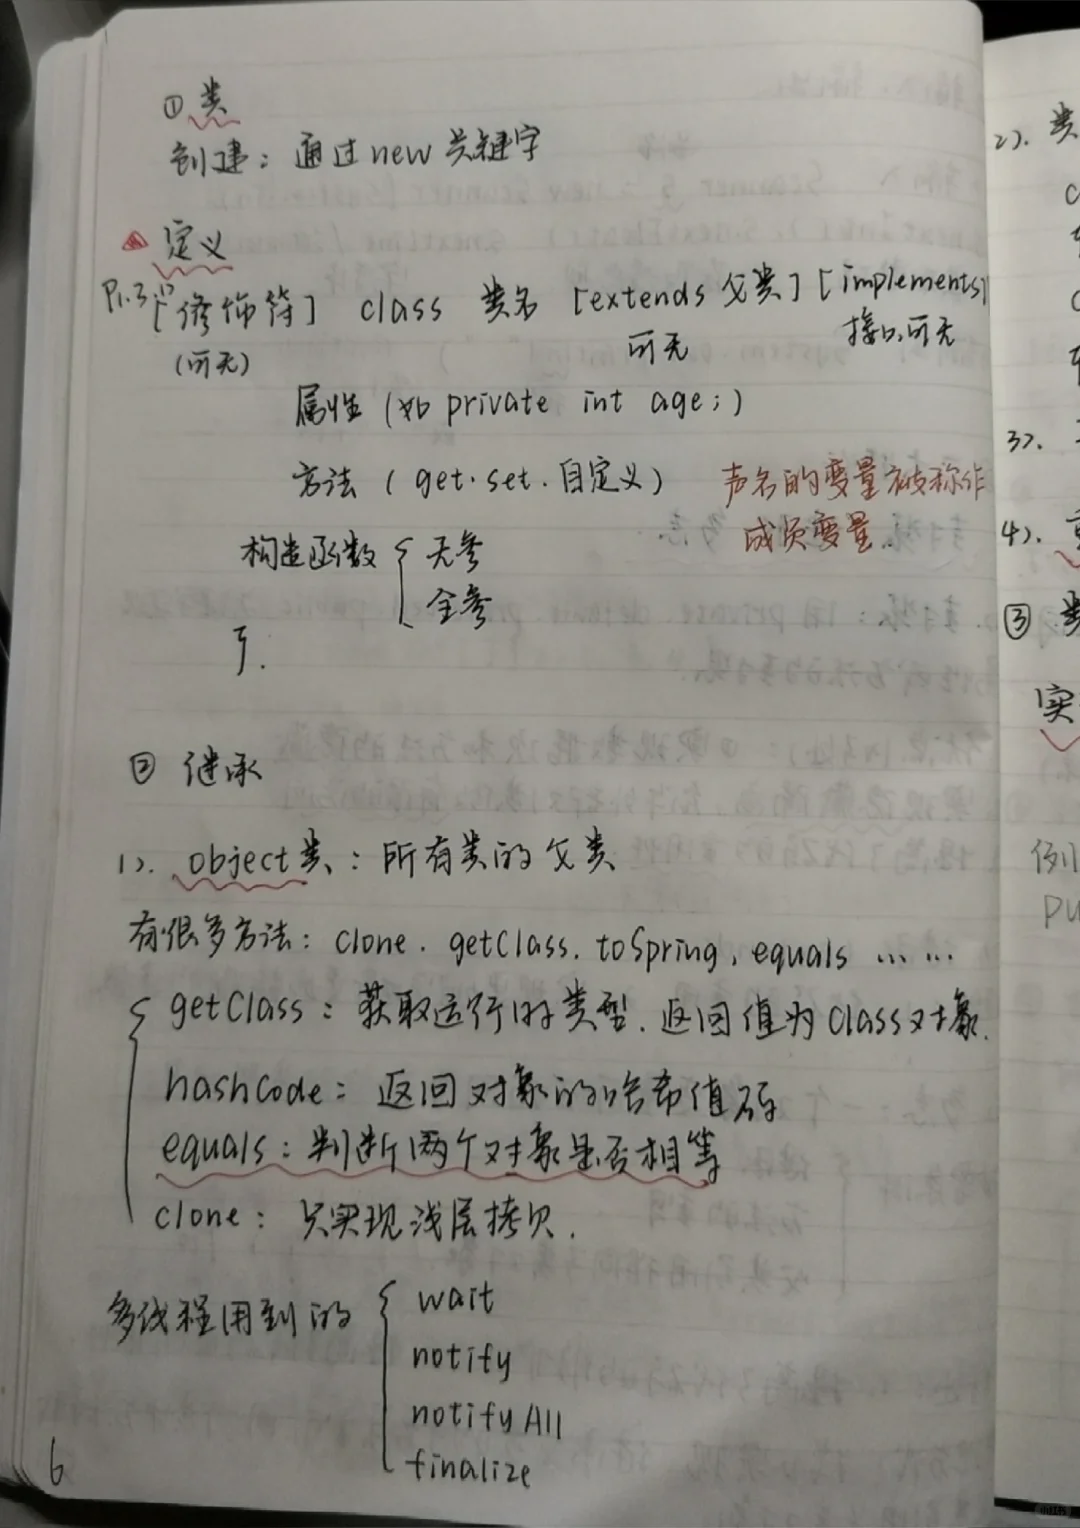 ① 类
创建：通过new关键字
定义
[修饰符] class 类名 [extends 父类] [implements]
(可无) 可无 接口,可无
属性 (如 private int age;)
方法 (get.set.自定义) 声名的变量被称作
成员变量..
构造函数 { 无参
全参
}.
② 继承
1). object类：所有类的父类
有很多方法：clone. getClass. toSpring, equals ……
{ getClass：获取运行时类型.返回值为Class对象.
hashCode：返回对象的哈希值码
equals：判断两个对象是否相等
clone：只实现浅层拷贝.
多线程用到的 { wait
notify
notifyAll
finalize
6
2). 类
3).
4).
③ 类
实
例
pu